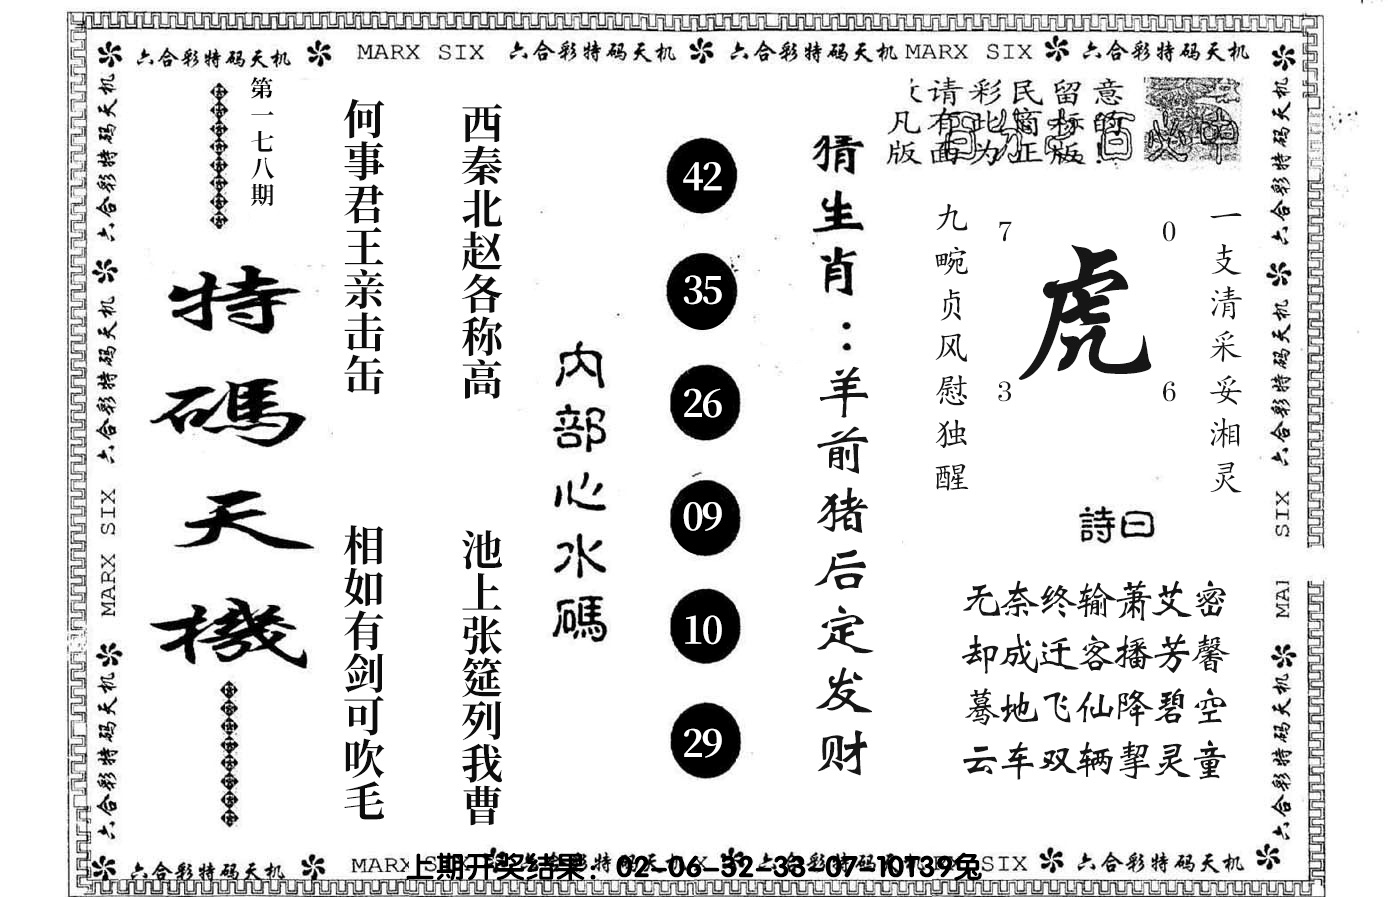 六合彩特码天机 MARX SIX 六合彩特码天机 六合彩特码天机 MARX SIX 六合彩特码天机
六合彩特码天机 六合彩特码天机 MARX SIX 六合彩特码天机
第一七八期
特碼天機
何事君王亲击缶
相如有剑可吹毛
西秦北赵各称高
池上张筵列我曹
内部心水碼
42
35
26
09
10
29
猜生肖：羊前猪后定发财
请彩民留意
凡有此商标的
版面为正版!
九畹贞风慰独醒
7 0
虎
3 6
一支清采妥湘灵
詩曰
无奈终输萧艾密
却成迁客播芳馨
蓦地飞仙降碧空
云车双辆挈灵童
六合彩特码天机 六合彩特码天机 SIX 六合彩特码天机
六合彩特码天机 MARX SIX 六合彩特码天机 SIX 六合彩特码天机
上期开奖结果：02-06-32-33-07-10T39兔